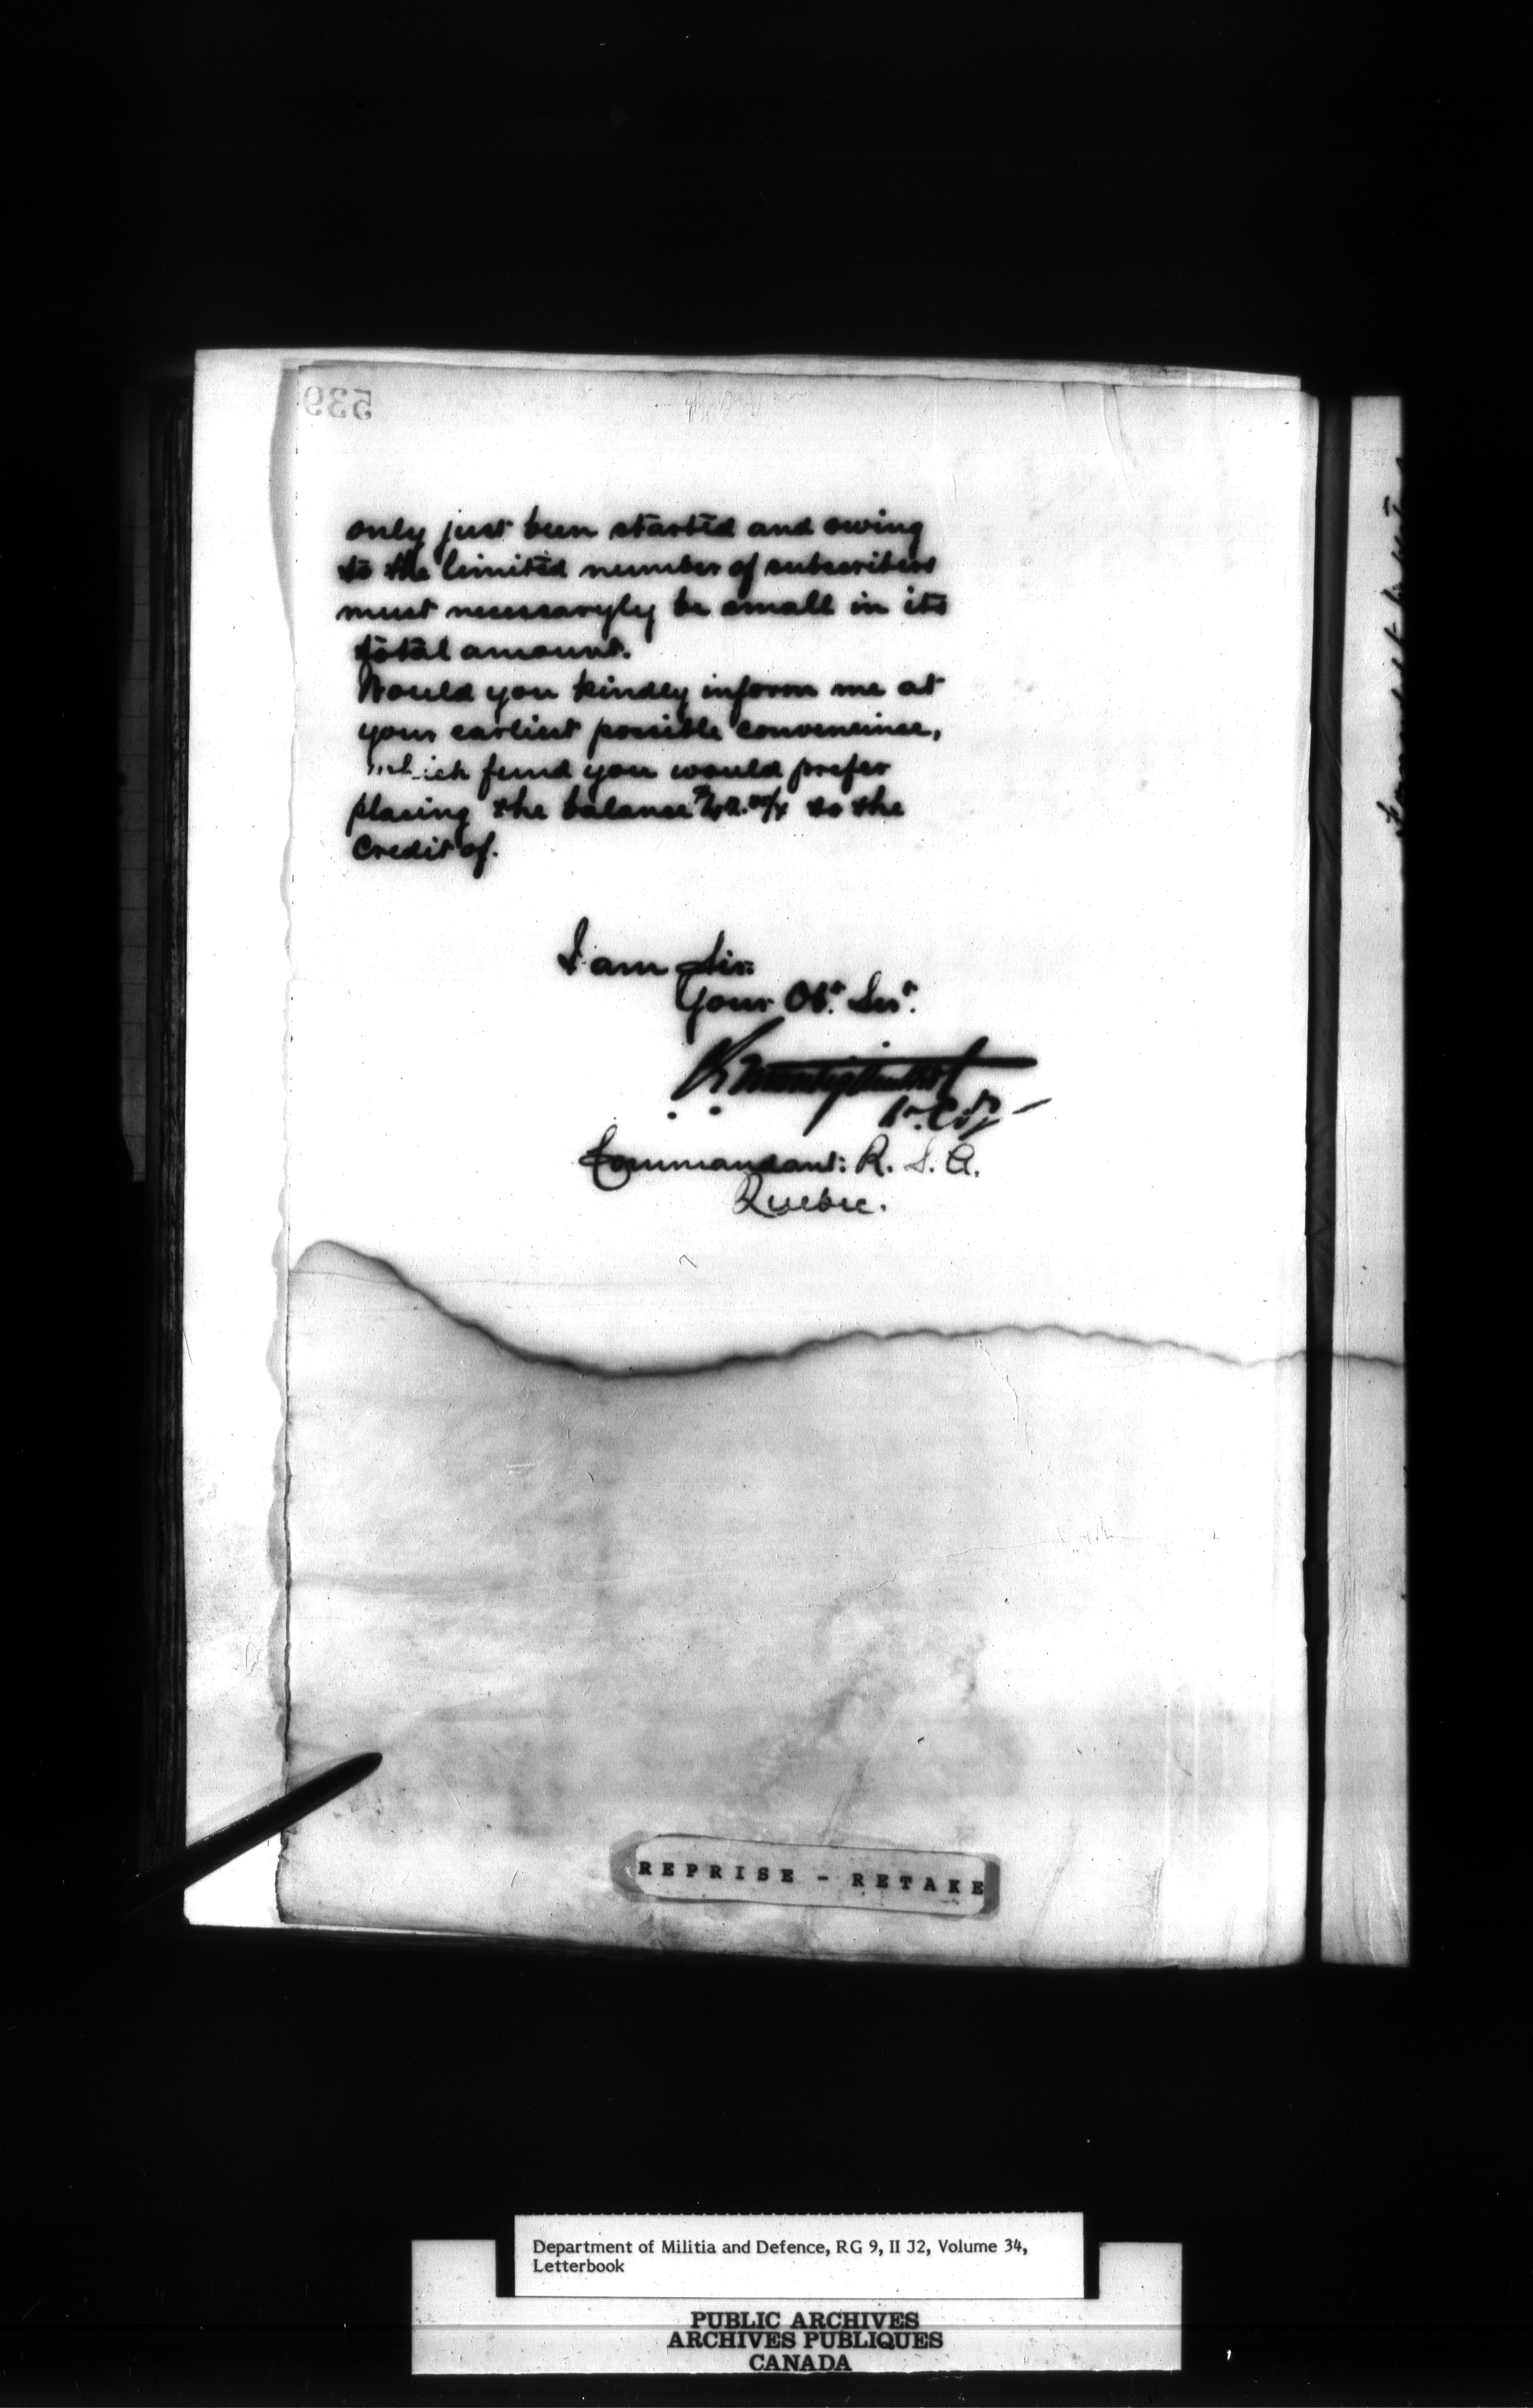 539
only just been started and owing
to the limited number of subscribers
must necessaryly be small in its
total amount.
Would you kindly inform me at
your earliest possible conveneince,
which fund you would prefer
placing the balance to the
Credit of.
I am Sir
Your Obt. Sert.
Commandant: R. S. A.
Quebec.
REPRISE - RETAKE
Department of Militia and Defence, RG 9, II J2, Volume 34,
Letterbook
PUBLIC ARCHIVES
ARCHIVES PUBLIQUES
CANADA